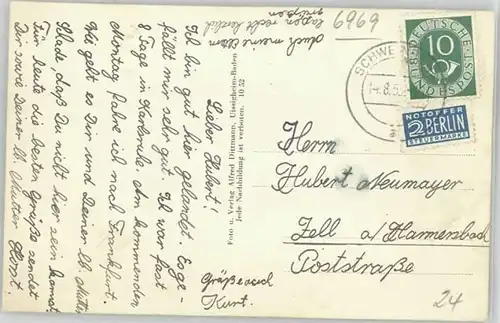 Lieber Hubert!
Ich bin gut hier gelandet. Es ge-
fällt mir sehr gut. Ich war fast
8 Tage in Karlsruhe. Am kommenden
Montag fahre ich nach Frankfurt.
Wie geht es Dir und Deiner lb. Mutter
Schade, daß Du nicht hier sein kannst
Für heute die besten Grüße sendet
Dir sowie Deiner lb. Mutter Horst.
Auch meine Eltern
lassen recht herzlich
grüßen
Grüße auch
Kurt.
Foto u. Verlag Alfred Dittmann, Uissigheim-Baden
Jede Nachbildung ist verboten. 10 52
6969
SCHWE
14.8.5
DEUTSCHE
10
BUNDESPOST
NOTOPFER
2 BERLIN
STEUERMARKE
Herrn
Hubert Neumayer
Zell a/Harmersbach
Poststraße
24